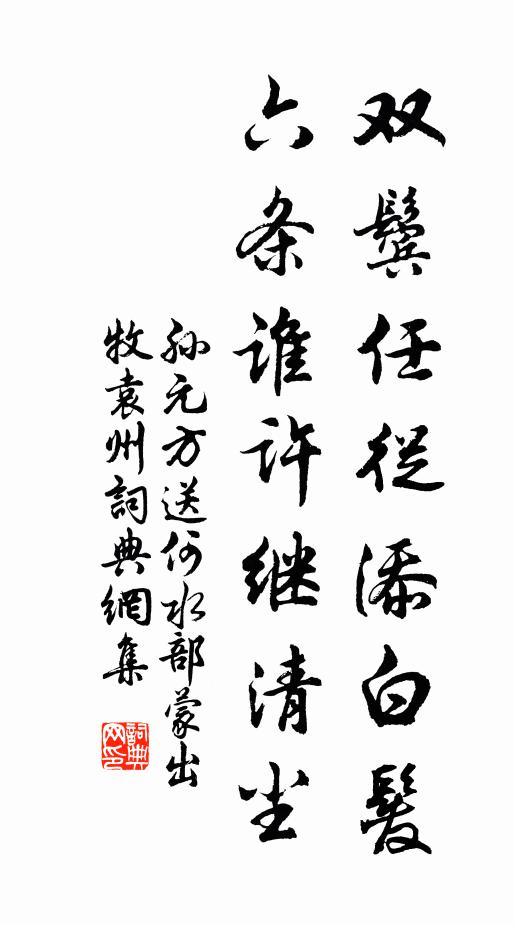 双鬓任従添白髮
六条谁许继清尘
孙元方送何水部蒙出
牧袁州詞典網集
詞典
网印